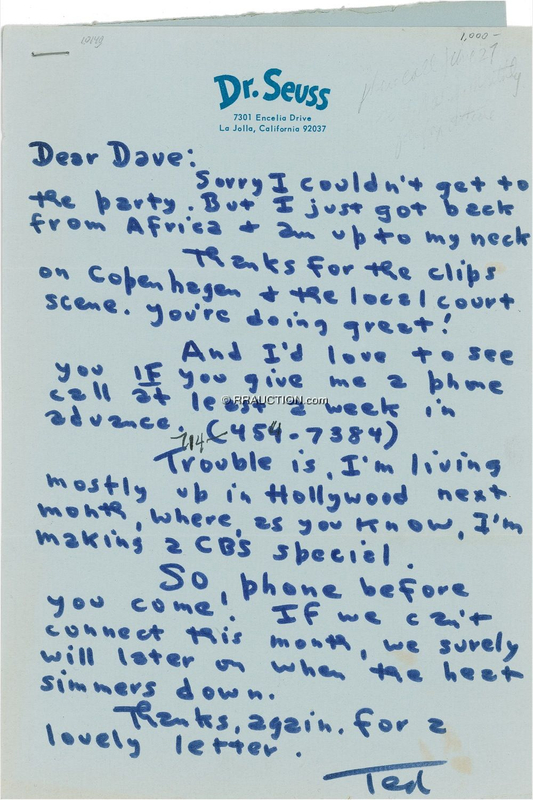 10149
1,000-
Dr. Seuss
7301 Encelia Drive
La Jolla, California 92037
Dear Dave:
Sorry I couldn't get to
the party. But I just got back
from Africa + am up to my neck
Thanks for the clips
on Copenhagen + the local court
scene. You're doing great!
And I'd love to see
you IF you give me a phone
call at least a week in
© RRAUCTION.com
advance. (454-7384)
714-
Trouble is, I'm living
mostly up in Hollywood next
month, where, as you know, I'm
making a CBS special.
So, phone before
you come. If we can't
connect this month, we surely
will later on when the heat
simmers down.
Thanks, again. for a
lovely letter.
Ted